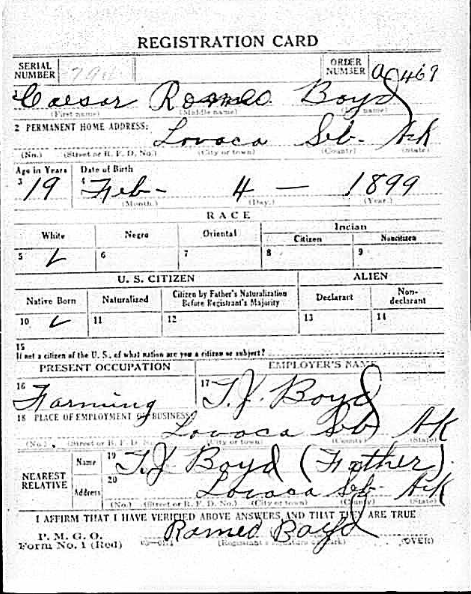 REGISTRATION CARD
SERIAL NUMBER ORDER NUMBER a 469
Caesar Romeo Boyd
(First name) (Middle name) name)
2 PERMANENT HOME ADDRESS: Lovaca Seb- Ark
(No.) (Street or R. F. D. No.) (City or town) (County) (State)
Age in Years Date of Birth
3 19 4 Feb- 4 - 1899
(Month.) (Day.) (Year.)
RACE
White Negro Oriental Indian
Citizen Noncitizen
5 6 7 8 9
U. S. CITIZEN ALIEN
Native Born Naturalized Citizen by Father's Naturalization Before Registrant's Majority Declarant Non-declarant
10 11 12 13 14
15
If not a citizen of the U. S., of what nation are you a citizen or subject?
PRESENT OCCUPATION EMPLOYER'S NAME
16 Farming 17 T. J. Boyd
18 PLACE OF EMPLOYMENT OR BUSINESS:
Lovaca Seb Ark
(No.) (Street or R. F. D. No.) (City or town) (County) (State)
NEAREST RELATIVE Name 19 T. J Boyd (Father)
Address 20 Lovaca Seb Ark
(No.) (Street or R. F. D. No.) (City or town) (County) (State)
I AFFIRM THAT I HAVE VERIFIED ABOVE ANSWERS AND THAT THEY ARE TRUE
P. M. G. O.
Form No. 1 (Red) Romeo Boyd
(Registrant's signature or mark) (OVER)